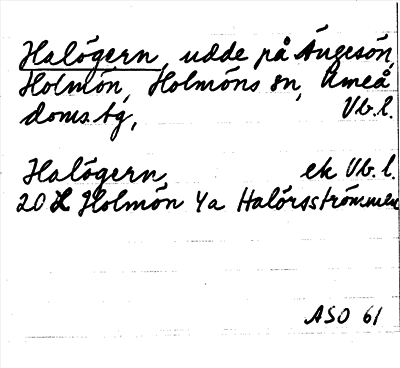 Halögern, udde på Ängesön,
Holmön, Holmöns sn, Umeå
doms tg, Vb.l.
Halögern ek Vb.l.
20 L Holmön 4a Halörsströmmen
ASO 61